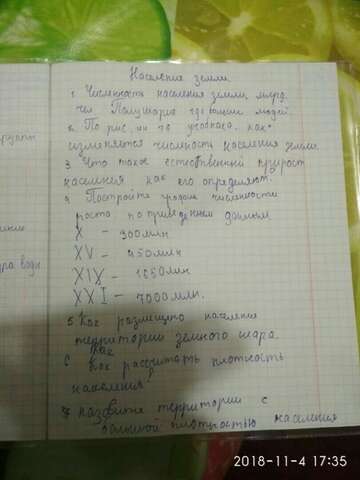 Население земли.
1. Численность населения земли, млрд.
чел
2. По рис. на учебника. как
изменяется числность населения земли.
3. Что такое естественный прирост
населения как его определяют?
4. Постройте численности
роста по приведенным данным
X – 300млн.
XV – 450млн
XIX – 1650млн
XXI – 7000млн.
5 Как размещено население
территории земного шара.
6 Как
Как рассчитать плотность
населения?
7 назвите территории с
большой плотностью населения
ра води
2018-11-4 17:35